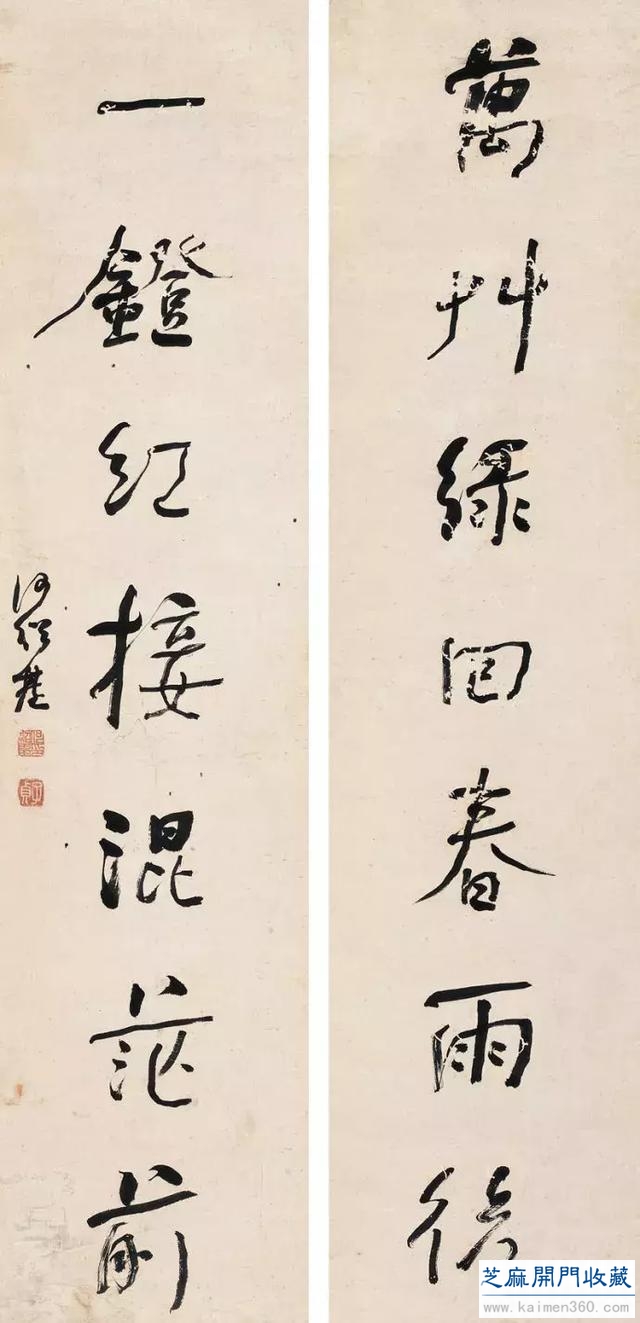 萬艸綠回春雨後
一鐙紅接混茫前
何紹基
子貞
芝麻開門收藏
www.kaimen360.com